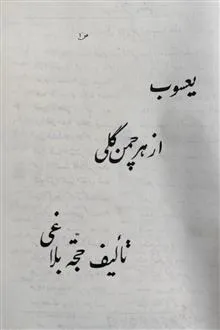 ص ۱
یعسوب
از هر چمن گلی
تألیف حجّة بلاغی